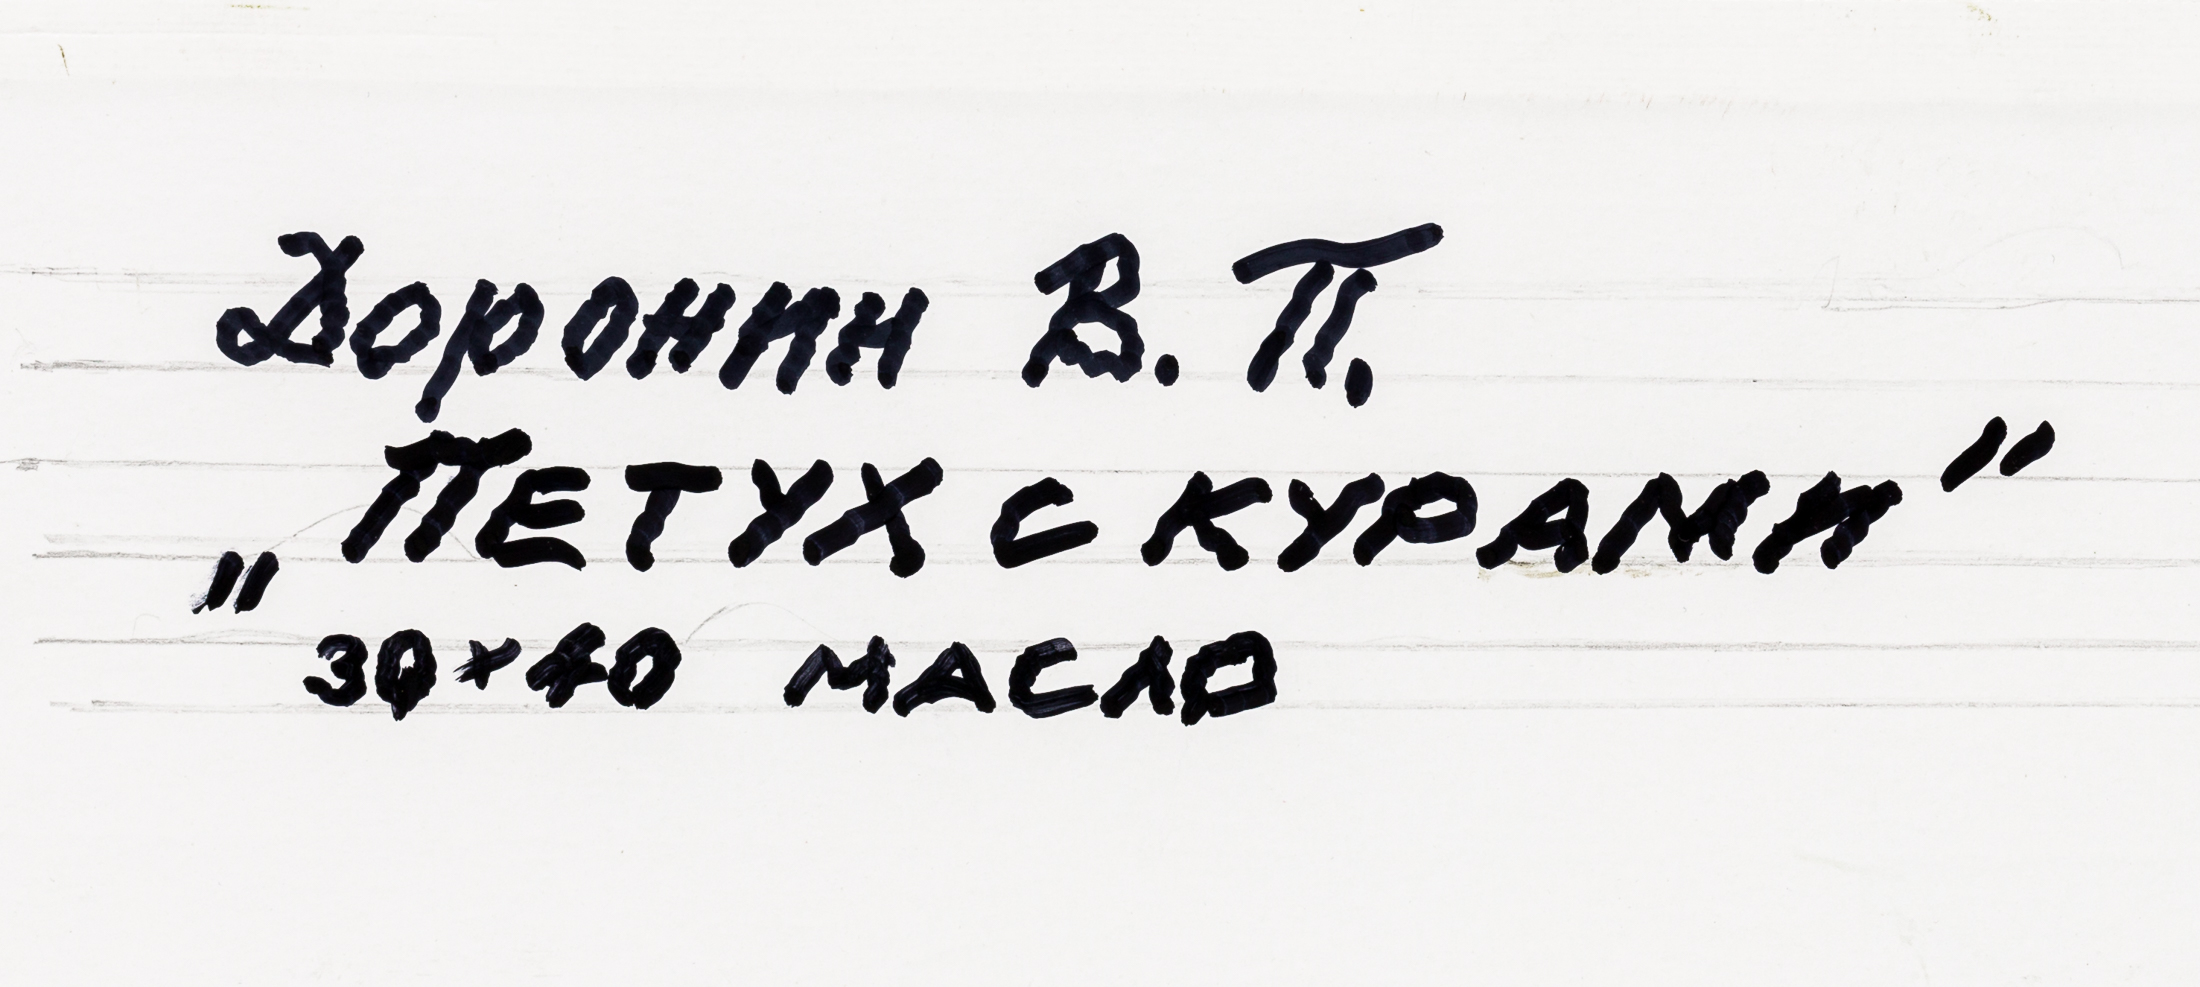 Доронин В. П.
„ПЕТУХ С КУРАМИ"
30×40 МАСЛО